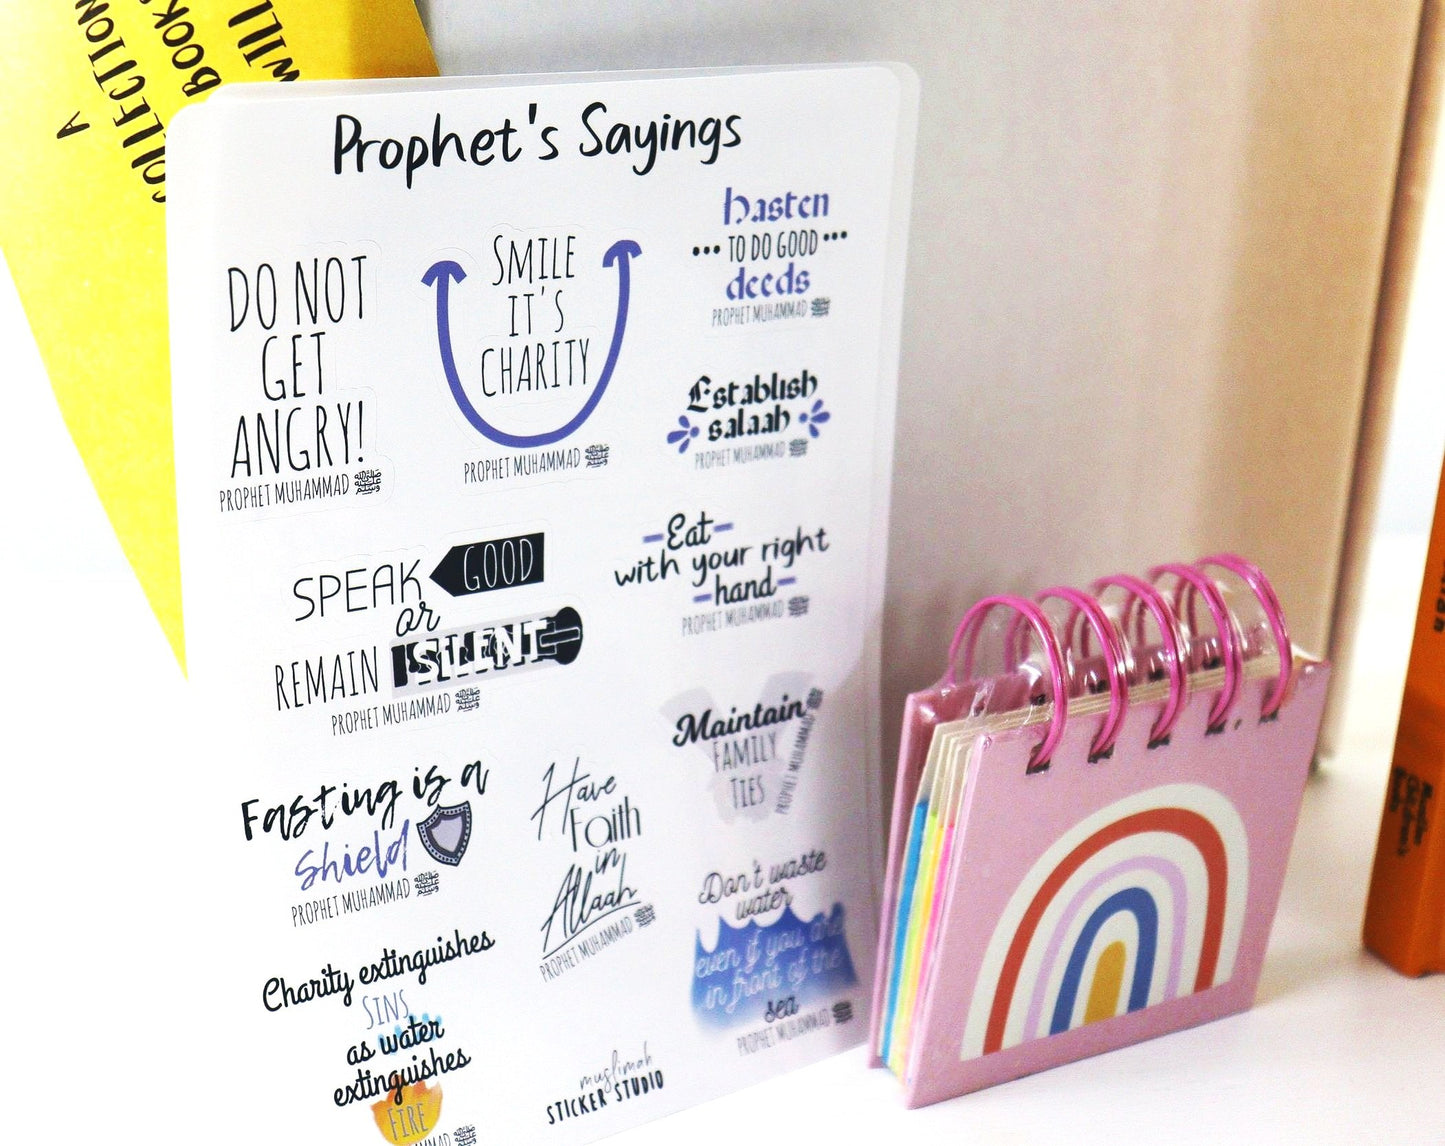 A
COLLECTION
BOOKS
WILL
Prophet's Sayings
DO NOT
GET
ANGRY!
PROPHET MUHAMMAD ﷺ
SMILE
IT'S
CHARITY
PROPHET MUHAMMAD ﷺ
Hasten
TO DO GOOD
deeds
PROPHET MUHAMMAD ﷺ
Establish
salaah
PROPHET MUHAMMAD ﷺ
SPEAK GOOD
or
REMAIN SILENT
PROPHET MUHAMMAD ﷺ
Eat
with your right
hand
PROPHET MUHAMMAD ﷺ
Maintain
FAMILY
TIES
PROPHET MUHAMMAD ﷺ
Fasting is a
Shield
PROPHET MUHAMMAD ﷺ
Have
Faith
in
Allaah
PROPHET MUHAMMAD ﷺ
Don't waste
water
even if you are
in front of the
sea
PROPHET MUHAMMAD ﷺ
Charity extinguishes
SINS
as water
extinguishes
FIRE
MMAD ﷺ
muslimah
STICKER STUDIO